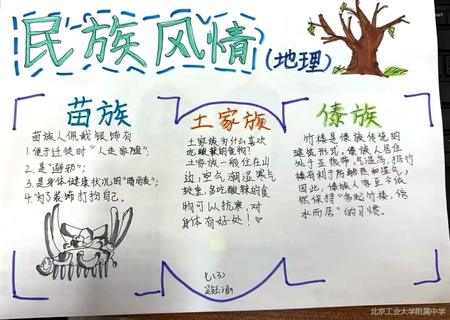 民族风情
(地理)
苗族
苗族人佩戴银饰有
1.便于迁徙时"人走家随";
2.是"避邪";
3.是身体健康状况的"晴雨表";
4.为了装饰打扮自己。
土家族
土家族为什么喜欢
吃酸辣的食物?
土家族一般住在山
边,空气潮湿,寒气
较重,多吃酸辣的食
物可以抗寒,对
身体有好处!
傣族
竹楼是傣族传统的
建筑形式。傣族人居住
处于亚热带,气温高,搭竹
楼有利于防酷热和湿气,
因此,傣族人家至今依
然保持"多起竹楼,傍
水而居"的习惯。
七(3)
北京工业大学附属中学